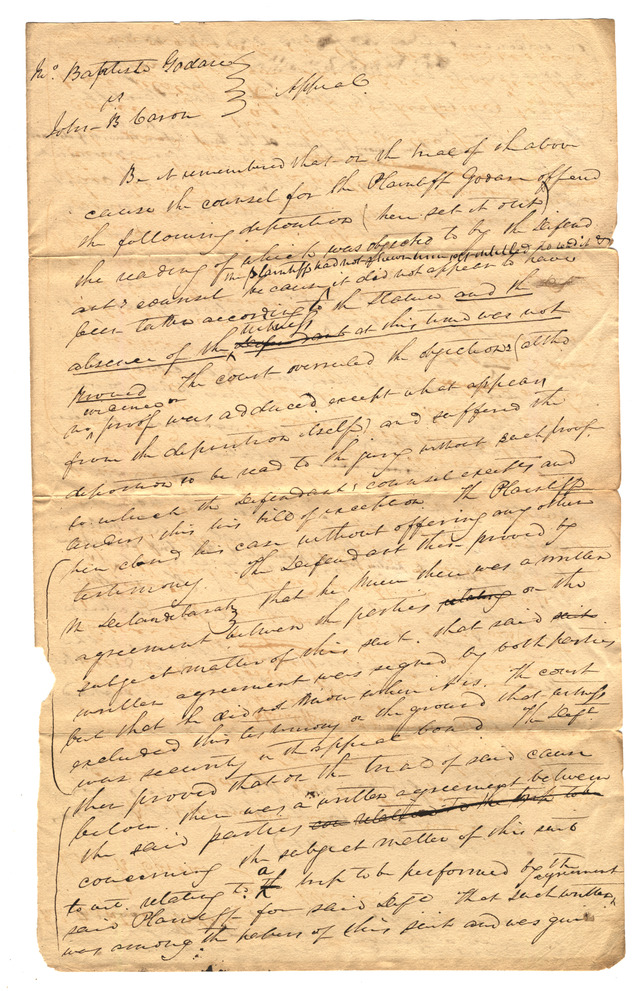 Jno. Baptiste Godare
vs
John B Caron } Appeal.
Be it remembered that on the trial of the above
cause the counsel for the Plaintiff Godare offered
the following deposition (here set it out)
the reading of which was objected to by the Defend
ant's counsel because it did not appear to have
the plaintiff had not shewn himself intitled to read it &
been taken according to the statute and the
absence of the witness at this time was not
proved The court overruled the objections (altho
no evidence or proof was adduced except what appears
from the deposition itself) and suffered the
deposition to be read to the jury without such proof
to which the Defendant's counsel excepts and
tenders this his bill of exception The Plaintiff
here closed his case without offering any other
testimony The Defendant then proved by
that he knew there was a written
agreement between the parties relating on the
subject matter of this suit. that said suit
written agreement was signed by both parties
but that he did not know where it is. The court
excluded this testimony on the ground that witness
was security in the appeal bond. The Deft
then proved that on the trial of said cause
below there was a written agreement between
the said parties
concerning the subject matter of this suit
to wit. relating to a trip to be performed by the
said Plaintiff for said Deft That such written agreement
was among the papers of this suit and was